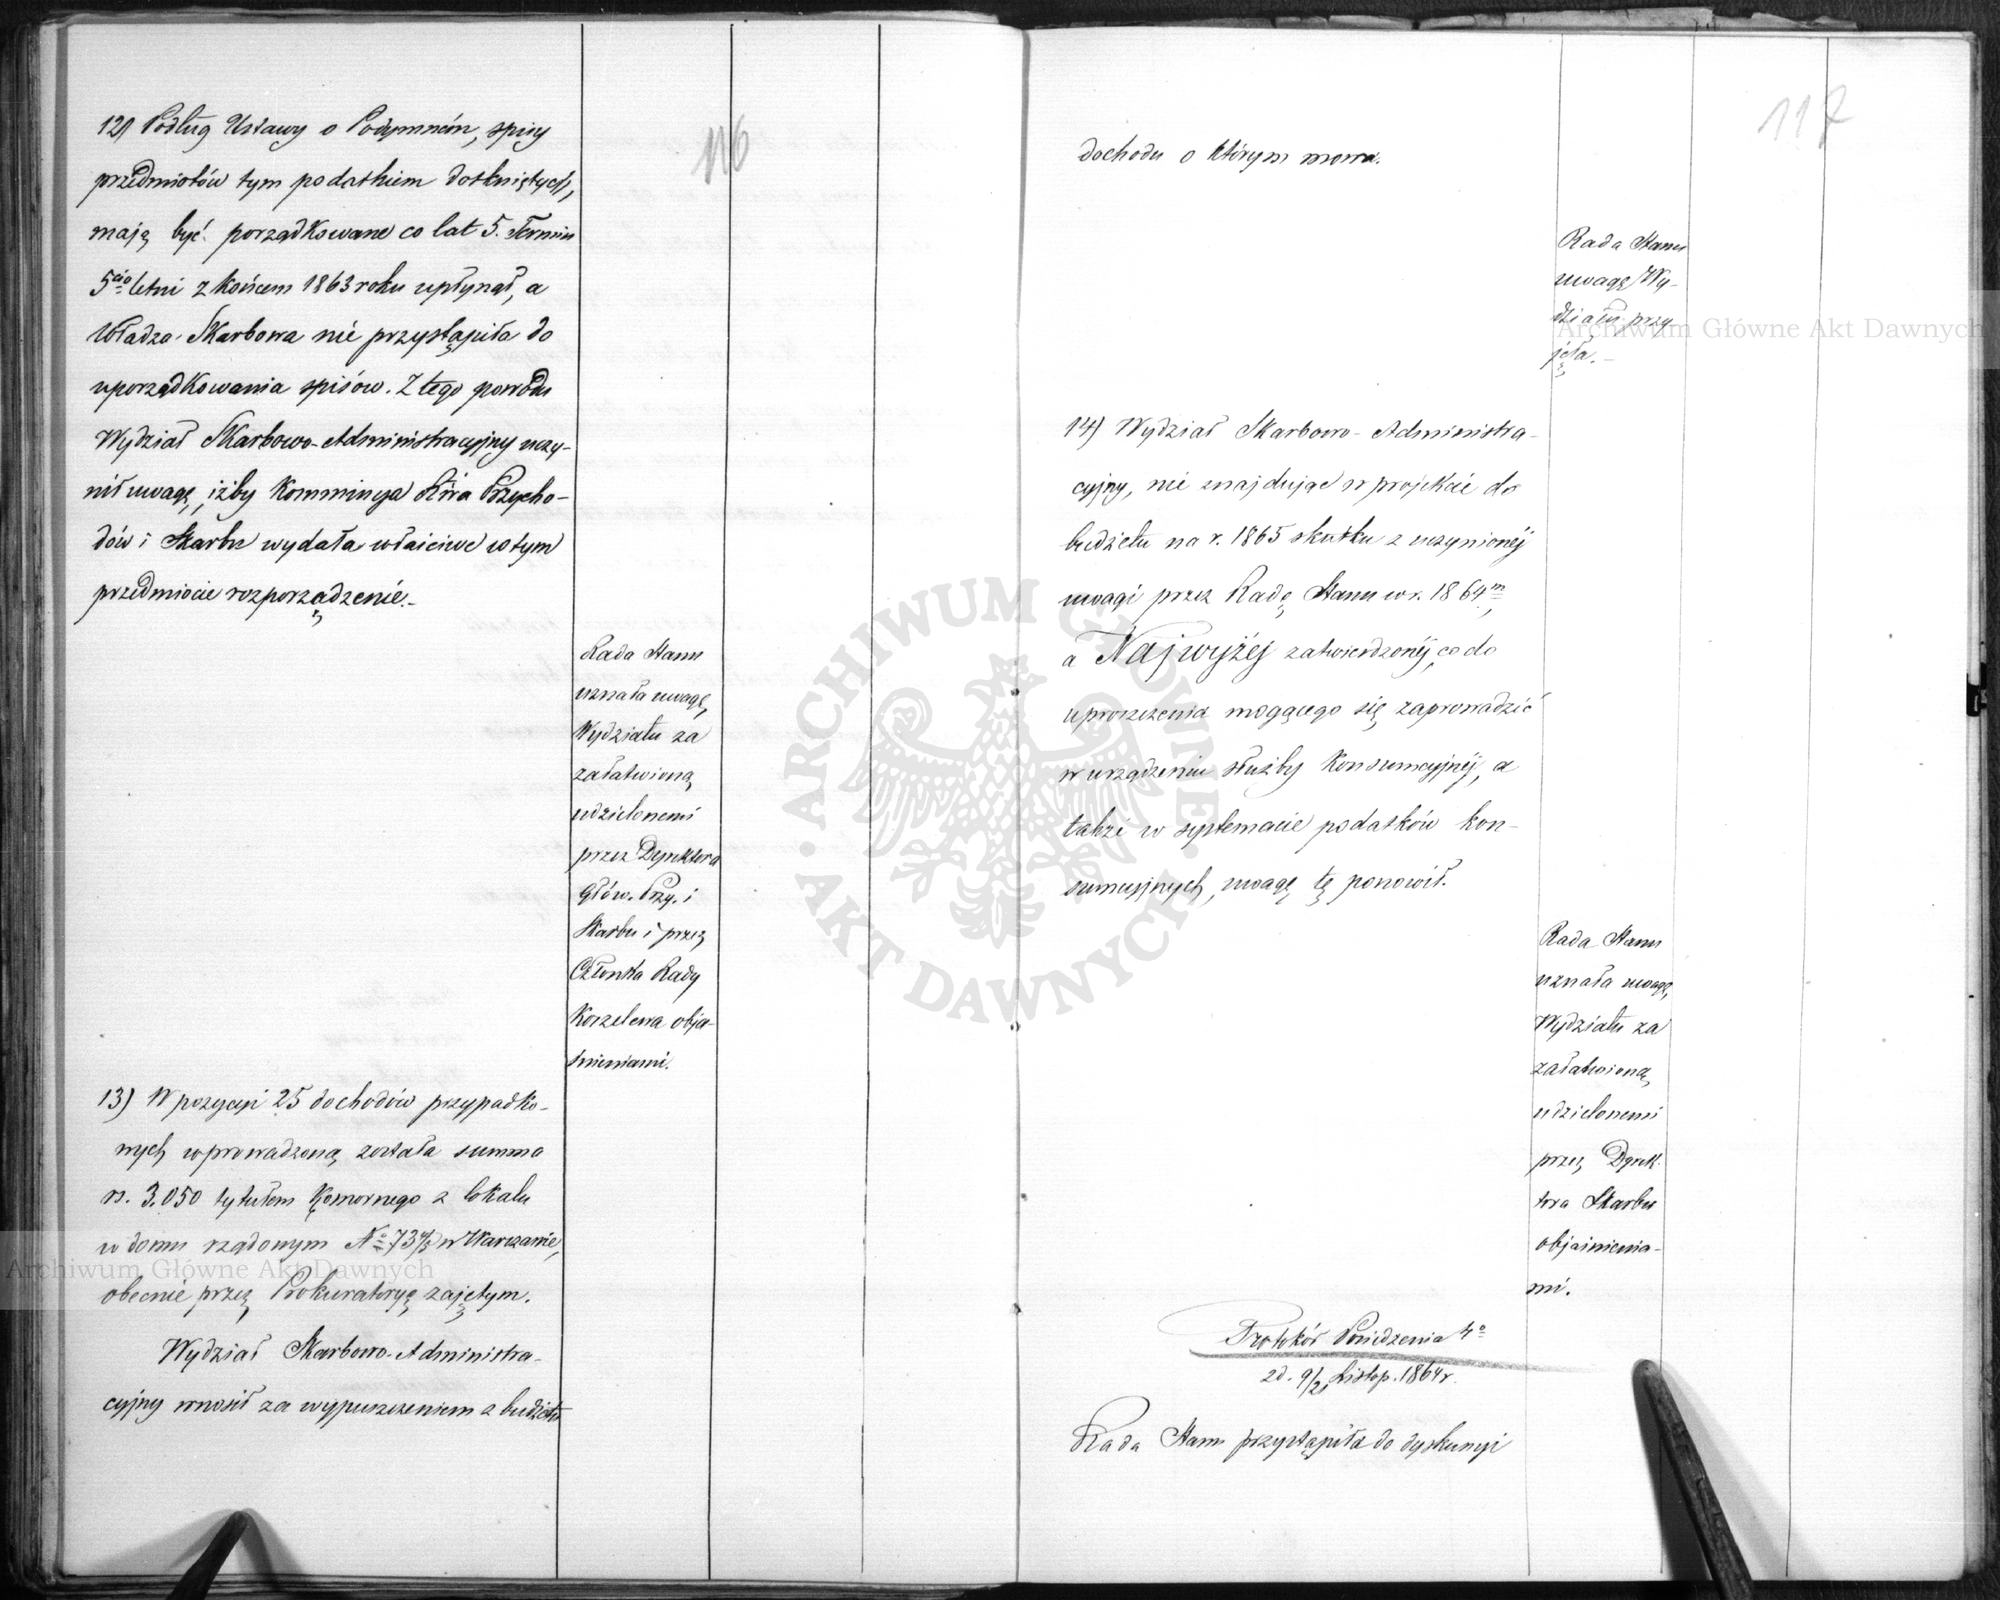 116
12) Podług Ustawy o Podymném, spisy
przedmiotów tym podatkiem dotkniętych,
mają być porządkowane co lat 5. Termin
5cio letni z końcem 1863 roku upłynął, a
Władza Skarbowa nie przystąpiła do
uporządkowania spisów. Z tego powodu
Wydział Skarbowo-Administracyjny uczy-
nił uwagę, iżby Kommissya Rzą Przycho-
dów i Skarbu wydała właściwe w tym
przedmiocie rozporządzenie.-
Rada Stanu
uznała uwagę
Wydziału za
załatwioną
udzielonemi
przez Dyrektora
Głów. Przy. i
Skarbu i przez
Członka Rady
Korzelewa obja-
śnieniami.
13) W pozycyi 25 dochodów przypadko-
wych wprowadzoną została summa
rs. 3.050 tytułem Komornego z lokalu
w domu rządowym No 734/5 w Warszawie,
obecnie przez Prokuratoryę zajętym.
Wydział Skarbowo-Administra-
cyjny wnosił za wypuszczeniem z budżetu
117
dochodu o którym mowa.
Rada Stanu
uwagę Wy-
działu przy
jęła.-
14) Wydział Skarbowo-Administra-
cyjny, nie znajdując w projekcie do
budżetu na r. 1865 skutku z uczynionéj
uwagi przez Radę Stanu w r. 1864m,
a Najwyżéj zatwierdzonéj, co do
uproszczenia mogącego się zaprowadzić
w urządzeniu służby Konsumcyjnéj, a
także w systemacie podatków kon-
sumcyjnych, uwagę tę ponowił.
Rada Stanu
uznała uwagę
Wydziału za
załatwioną
udzielonemi
przez Dyrek-
tora Skarbu
objaśnienia-
mi.
Protokół Posiedzenia 4o
zd. 9/21 Listop. 1864 r.
Rada Stanu przystąpiła do dyskusyi
Archiwum Główne Akt Dawnych
Archiwum Główne Akt Dawnych
ARCHIWUM GŁÓWNE AKT DAWNYCH